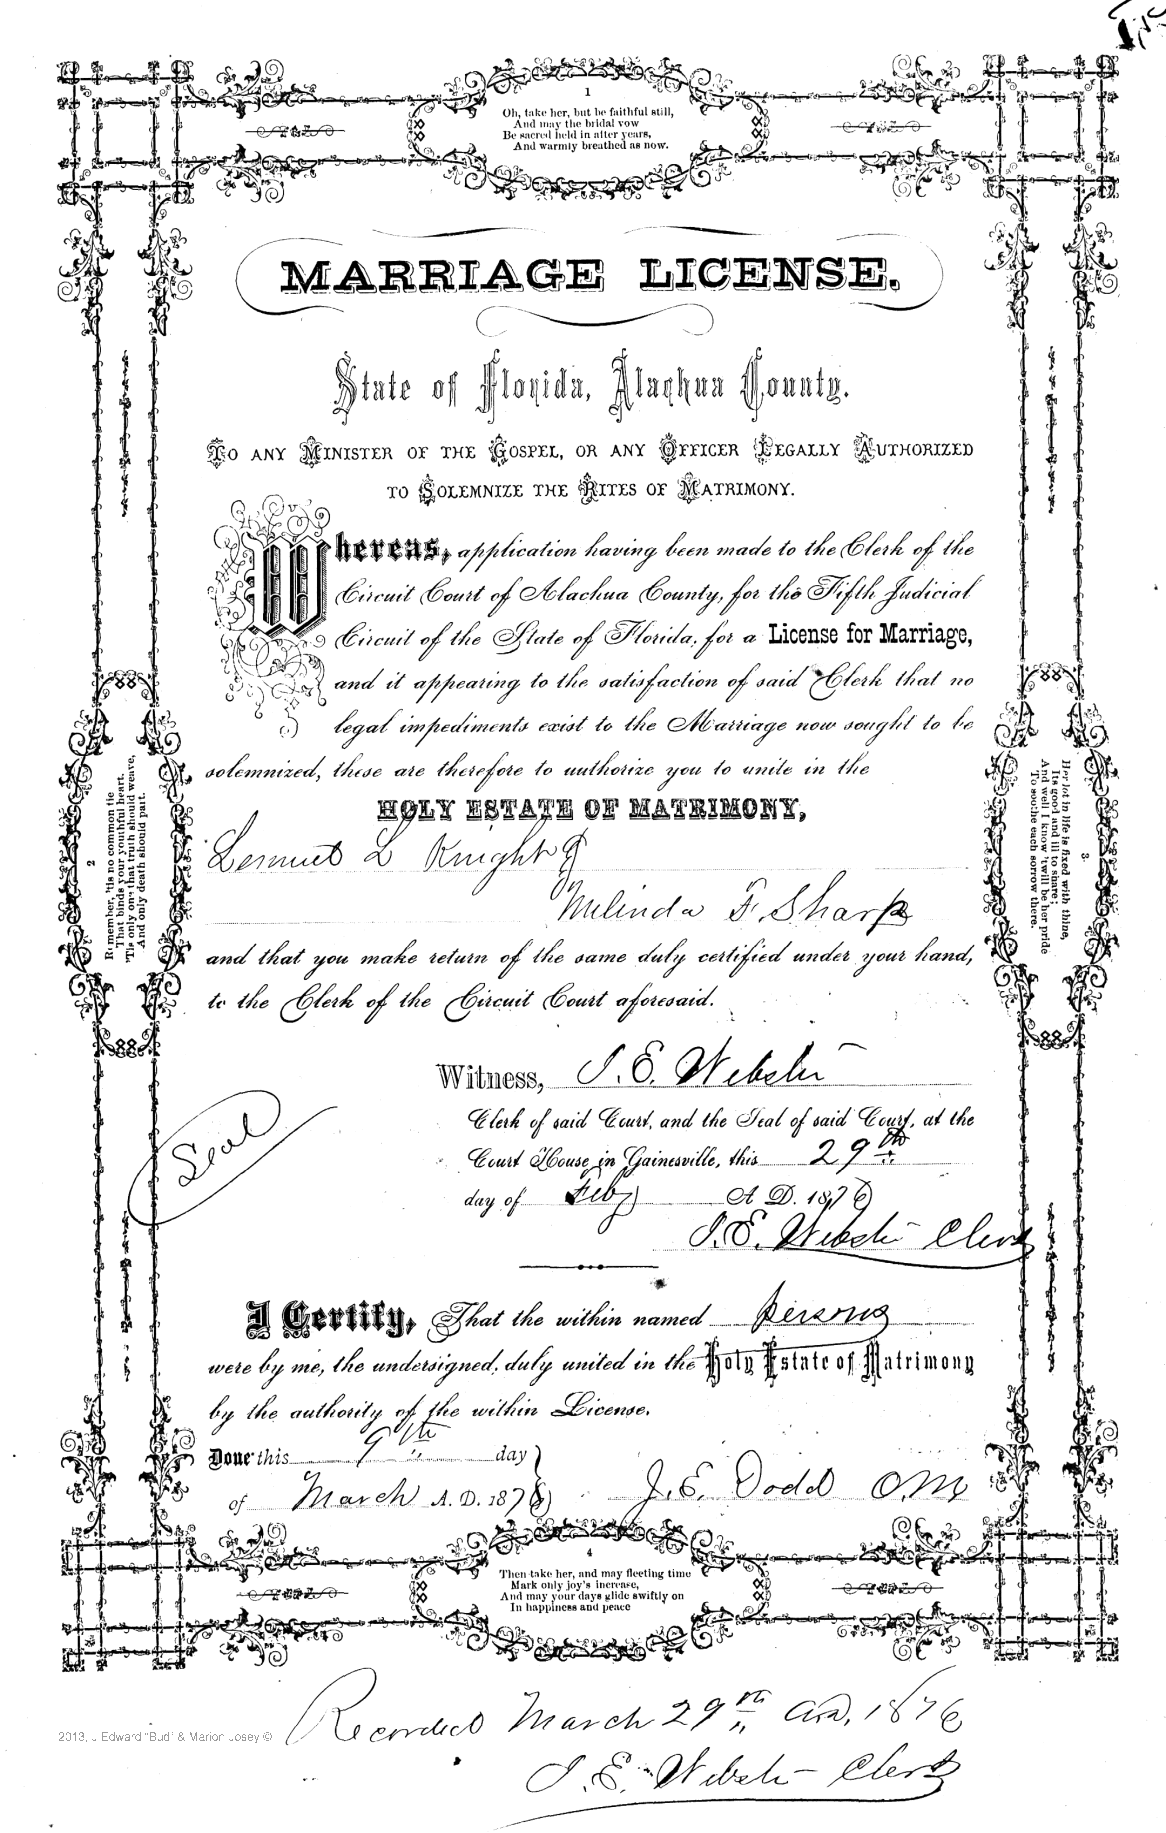 1
Oh, take her, but be faithful still,
And may the bridal vow
Be sacred held in after years,
And warmly breathed as now.
MARRIAGE LICENSE.
State of Florida, Alachua County.
To any Minister of the Gospel, or any Officer Legally Authorized
to Solemnize the Rites of Matrimony.
Whereas, application having been made to the Clerk of the
Circuit Court of Alachua County, for the Fifth Judicial
Circuit of the State of Florida, for a License for Marriage,
and it appearing to the satisfaction of said Clerk that no
legal impediments exist to the Marriage now sought to be
solemnized, these are therefore to authorize you to unite in the
HOLY ESTATE OF MATRIMONY,
Lemuel L Knight &
Melinda F. Sharp
and that you make return of the same duly certified under your hand,
to the Clerk of the Circuit Court aforesaid.
2
Remember, 'tis no common tie
That binds your youthful heart.
'Tis only one that truth should weave,
And only death should part.
3
Her lot in life is fixed with thine,
Its good and ill to share;
And well I know 'twill be her pride
To soothe each sorrow there.
Witness, J. E. Webster
Clerk of said Court, and the Seal of said Court, at the
Court House in Gainesville, this 29th
day of Feby A D. 1876
Seal
J. E. Webster Clerk
I Certify, That the within named persons
were by me, the undersigned, duly united in the Holy Estate of Matrimony
by the authority of the within License.
Done this 9th day
of March A. D. 1876
J. E. Dodd O.M.
4
Then take her, and may fleeting time
Mark only joy's increase,
And may your days glide swiftly on
In happiness and peace
Recorded March 29th A.D. 1876
J. E. Webster Clerk
2013, J Edward "Bud" & Marion Josey ©